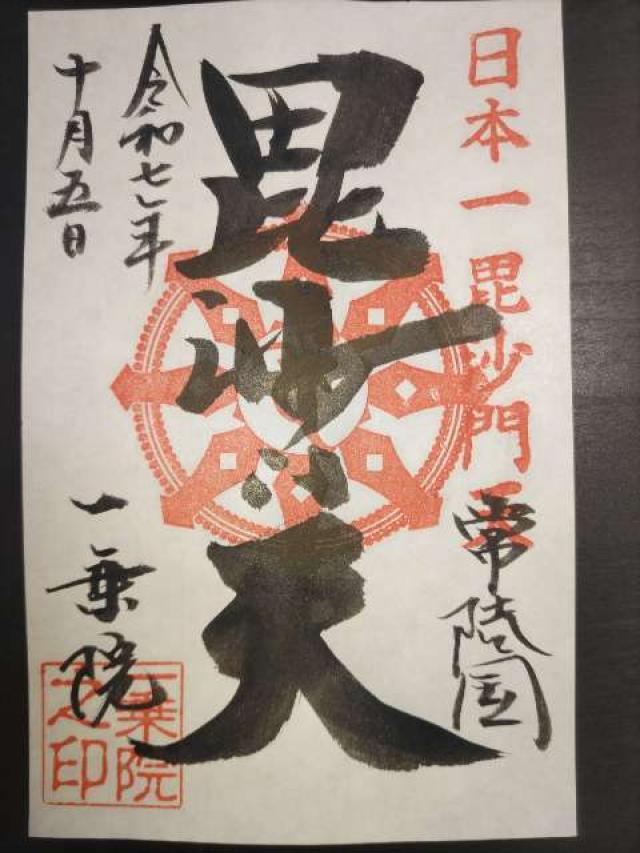 日本一毘沙門天
常陸国
毘沙門天
令和七年
十月五日
一乗院
一乗院之印